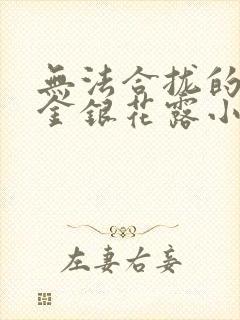 無法合拢的
金銀花露小
左妻右妾